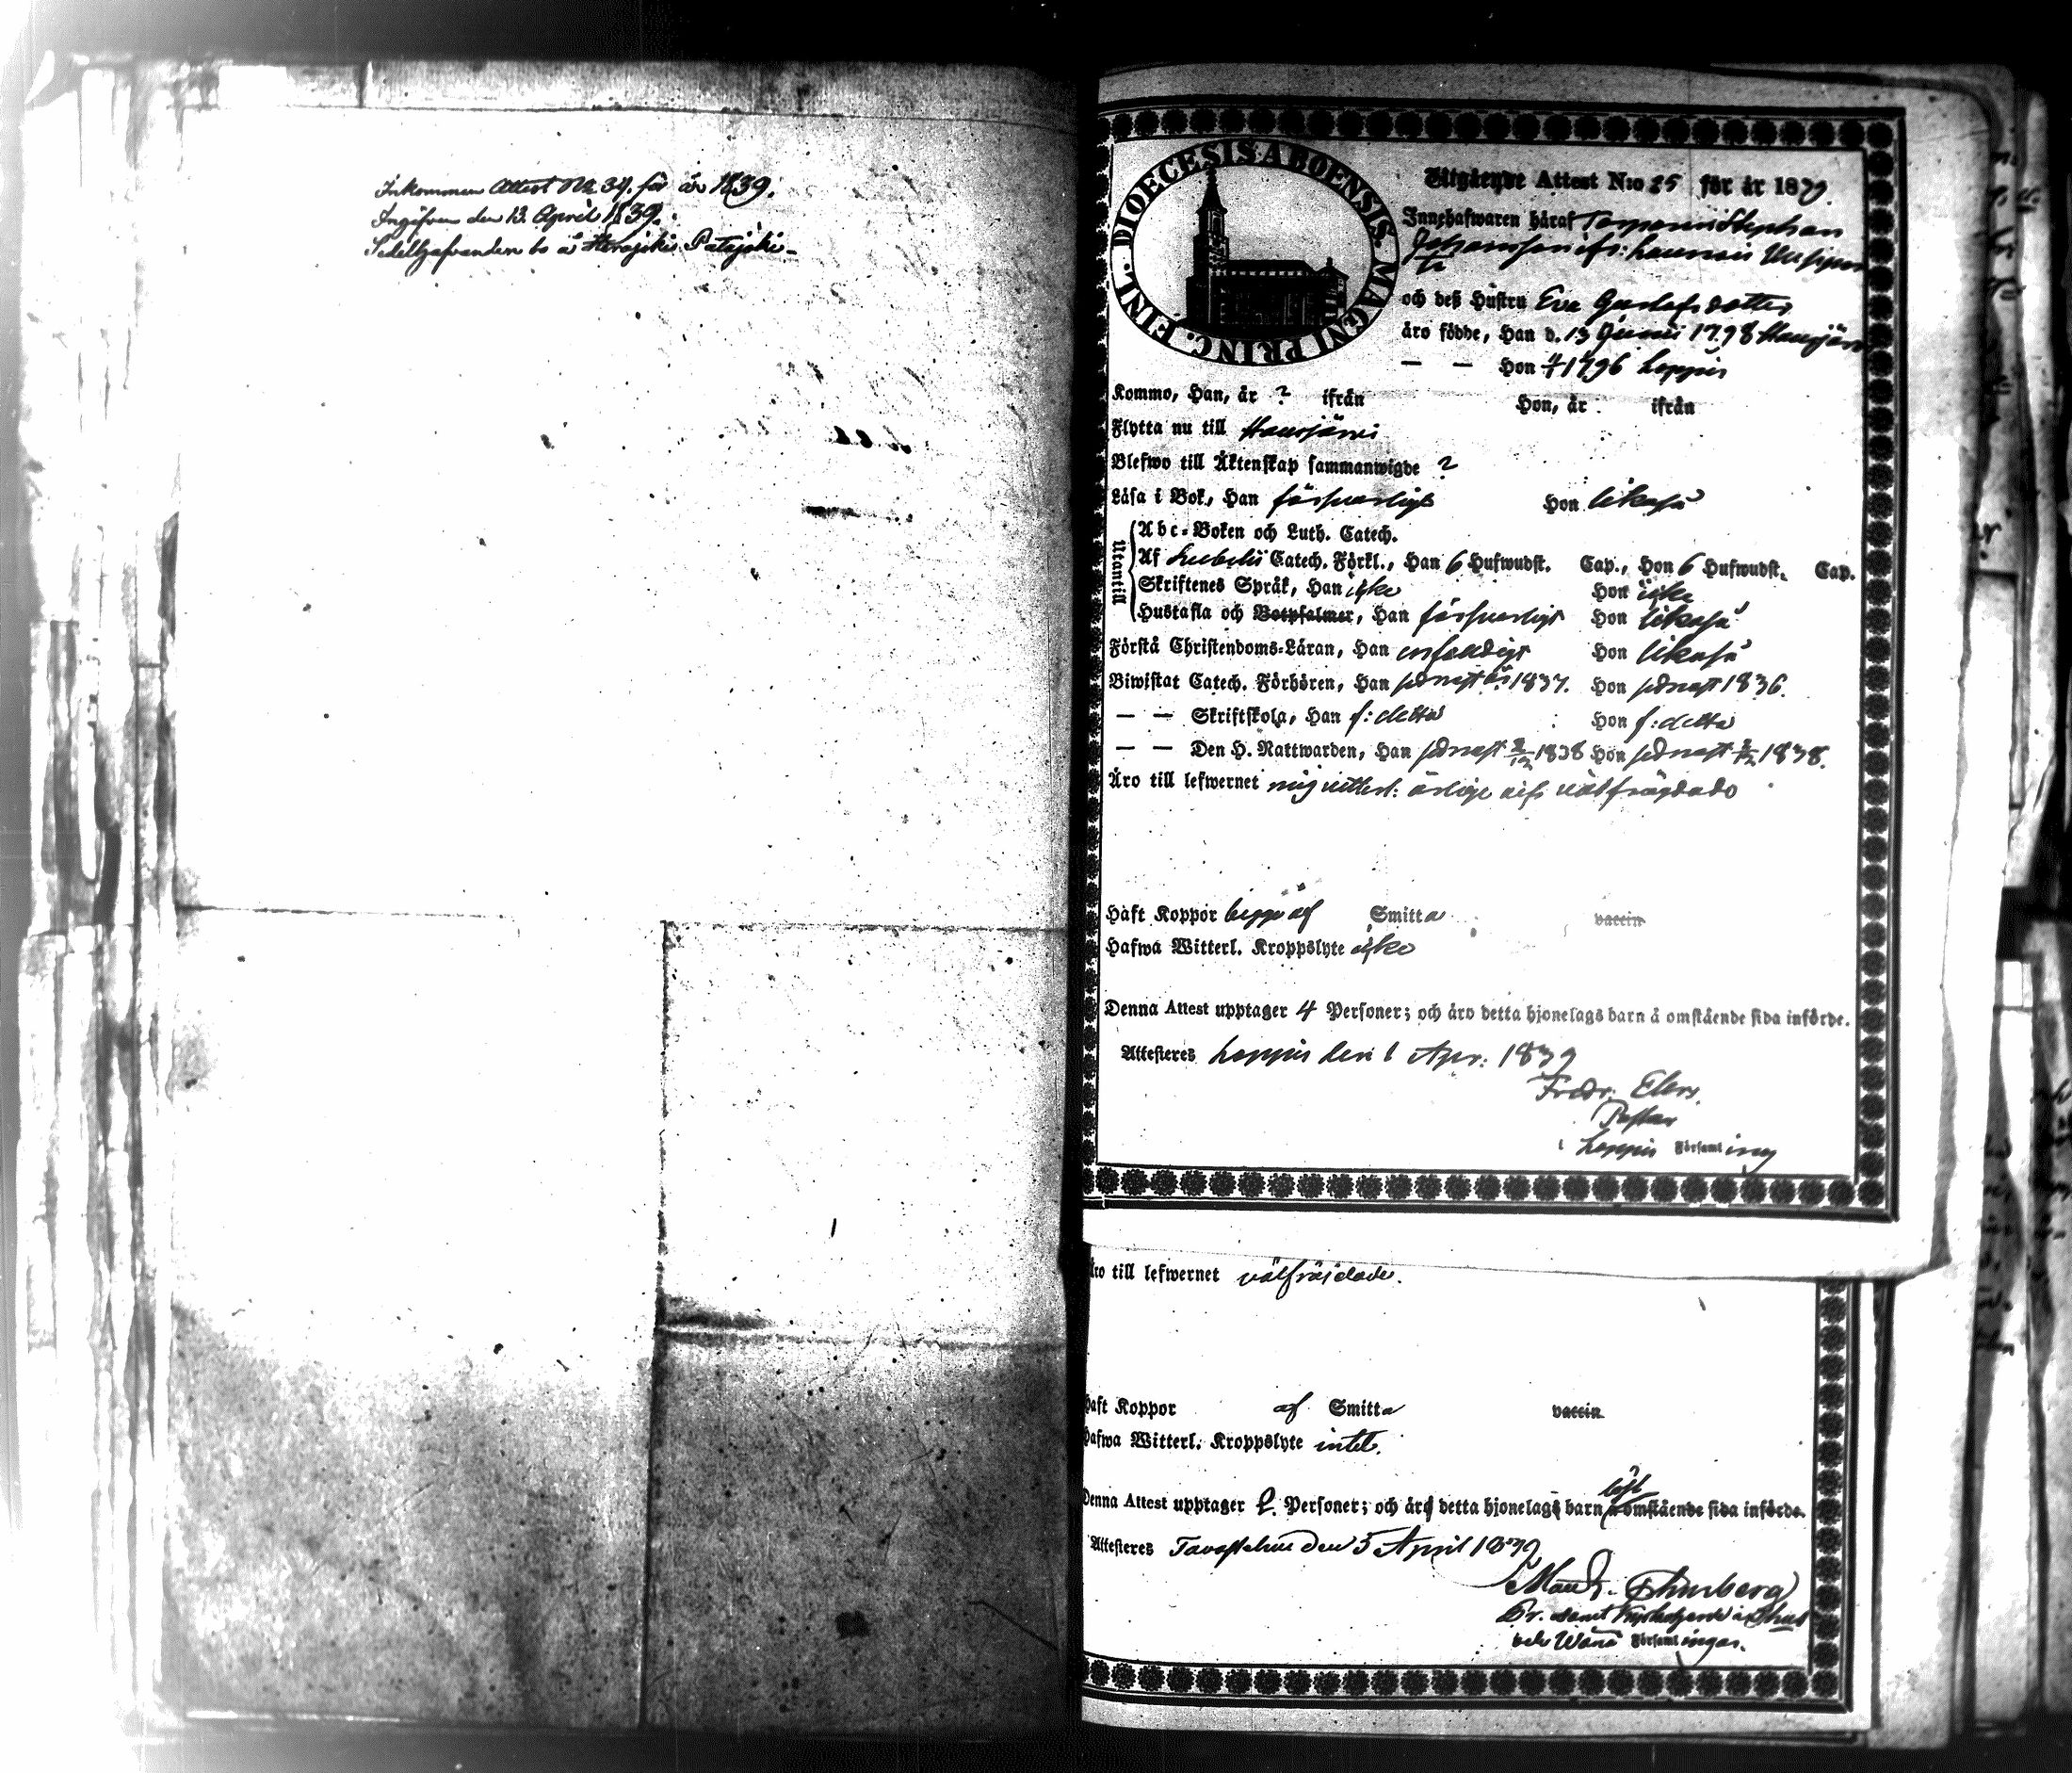 Inkommen Attest No 34. för år 1839.
Ingifven den 13. April 1839.
Sedellhafvanden bo å Herajoki Patajoki
DIOECESIS ABOENSIS. MAGNI PRINC. FINL.
Utgående Attest N:ro 25 för år 1839.
Innehafwaren häraf Torparen Stephan
Johansson ifr: Launois
och deß Hustru Eva Gustafsdotter
äro födde, Han d. 13 Junii 1798 Hausjärvi
— — Hon 1796 Loppis
Kommo, Han, år ? ifrån Hon, år ifrån
Flytta nu till Hausjärvi
Blefwo till Äktenskap sammanwigde ?
Läsa i Bok, Han försvarligt Hon likaså
Utantill
Abc-Boken och Luth. Catech.
Af Svebelii Catech. Förkl., Han 6 Hufwudst. Cap., Hon 6 Hufwudst. Cap.
Skriftenes Språk, Han icke Hon icke
Hustafla och Botpsalmer, Han försvarligt Hon likaså
Förstå Christendoms-Läran, Han enfaldigt Hon likaså
Biwistat Catech. Förhören, Han sednast år 1837. Hon sednast 1836.
— — Skriftskola, Han f: detta Hon f: detta
— — Den H. Nattwarden, Han sednast 1838 Hon sednast 1838.
Äro till lefwernet mig vitterl: ärlige och välfrägdade
Haft Koppor begge af Smitta vaccin
Hafwa Witterl. Kroppslyte icke
Denna Attest upptager 4 Personer; och äro detta hjonelags barn å omstående sida införde.
Attesteras Loppis den 1 Apr: 1839
Fredr. Elers.
Pastor
i Loppis Församling
Äro till lefwernet välfräjdade.
Haft Koppor af Smitta vaccin
Hafwa Witterl. Kroppslyte intet.
Denna Attest upptager 2. Personer; och äro detta hjonelags barn å omstående sida införde.
Attesteras Tavastehus den 5 April 1839
och Wånå Församlingar.